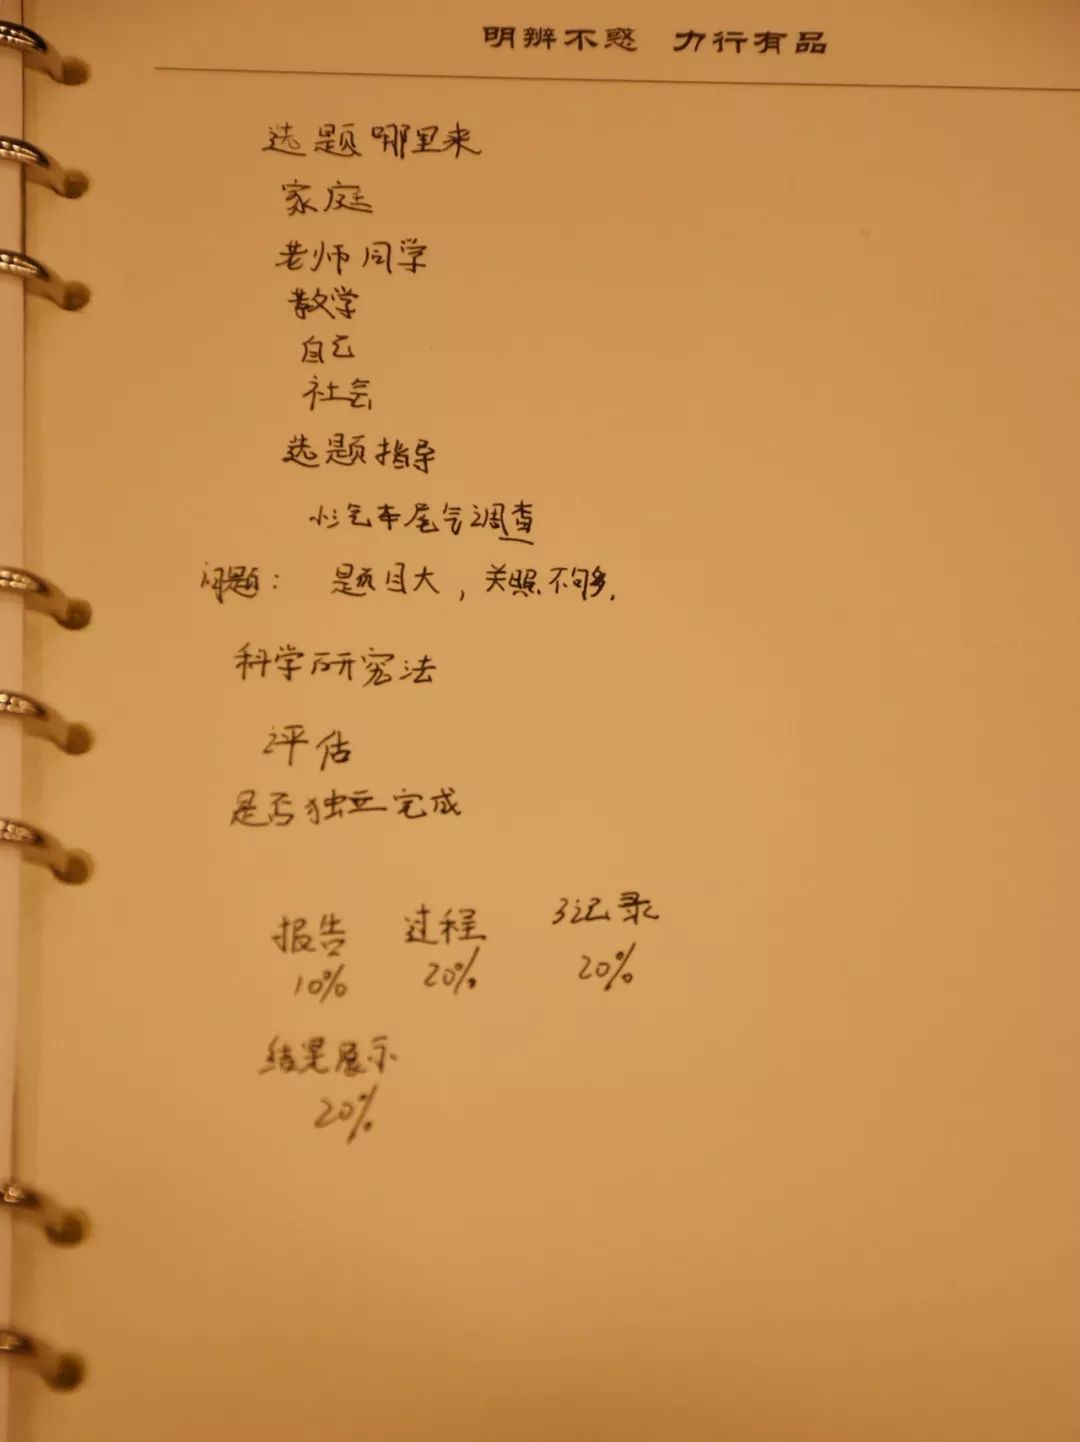 明辨不惑 力行有品
选题哪里来
家庭
老师同学
教学
自己
社会
选题指导
小汽车尾气调查
问题: 题目大, 关照不够.
科学研究法
评估
是否独立完成
报告 过程 记录
10% 20% 20%
结果展示
20%